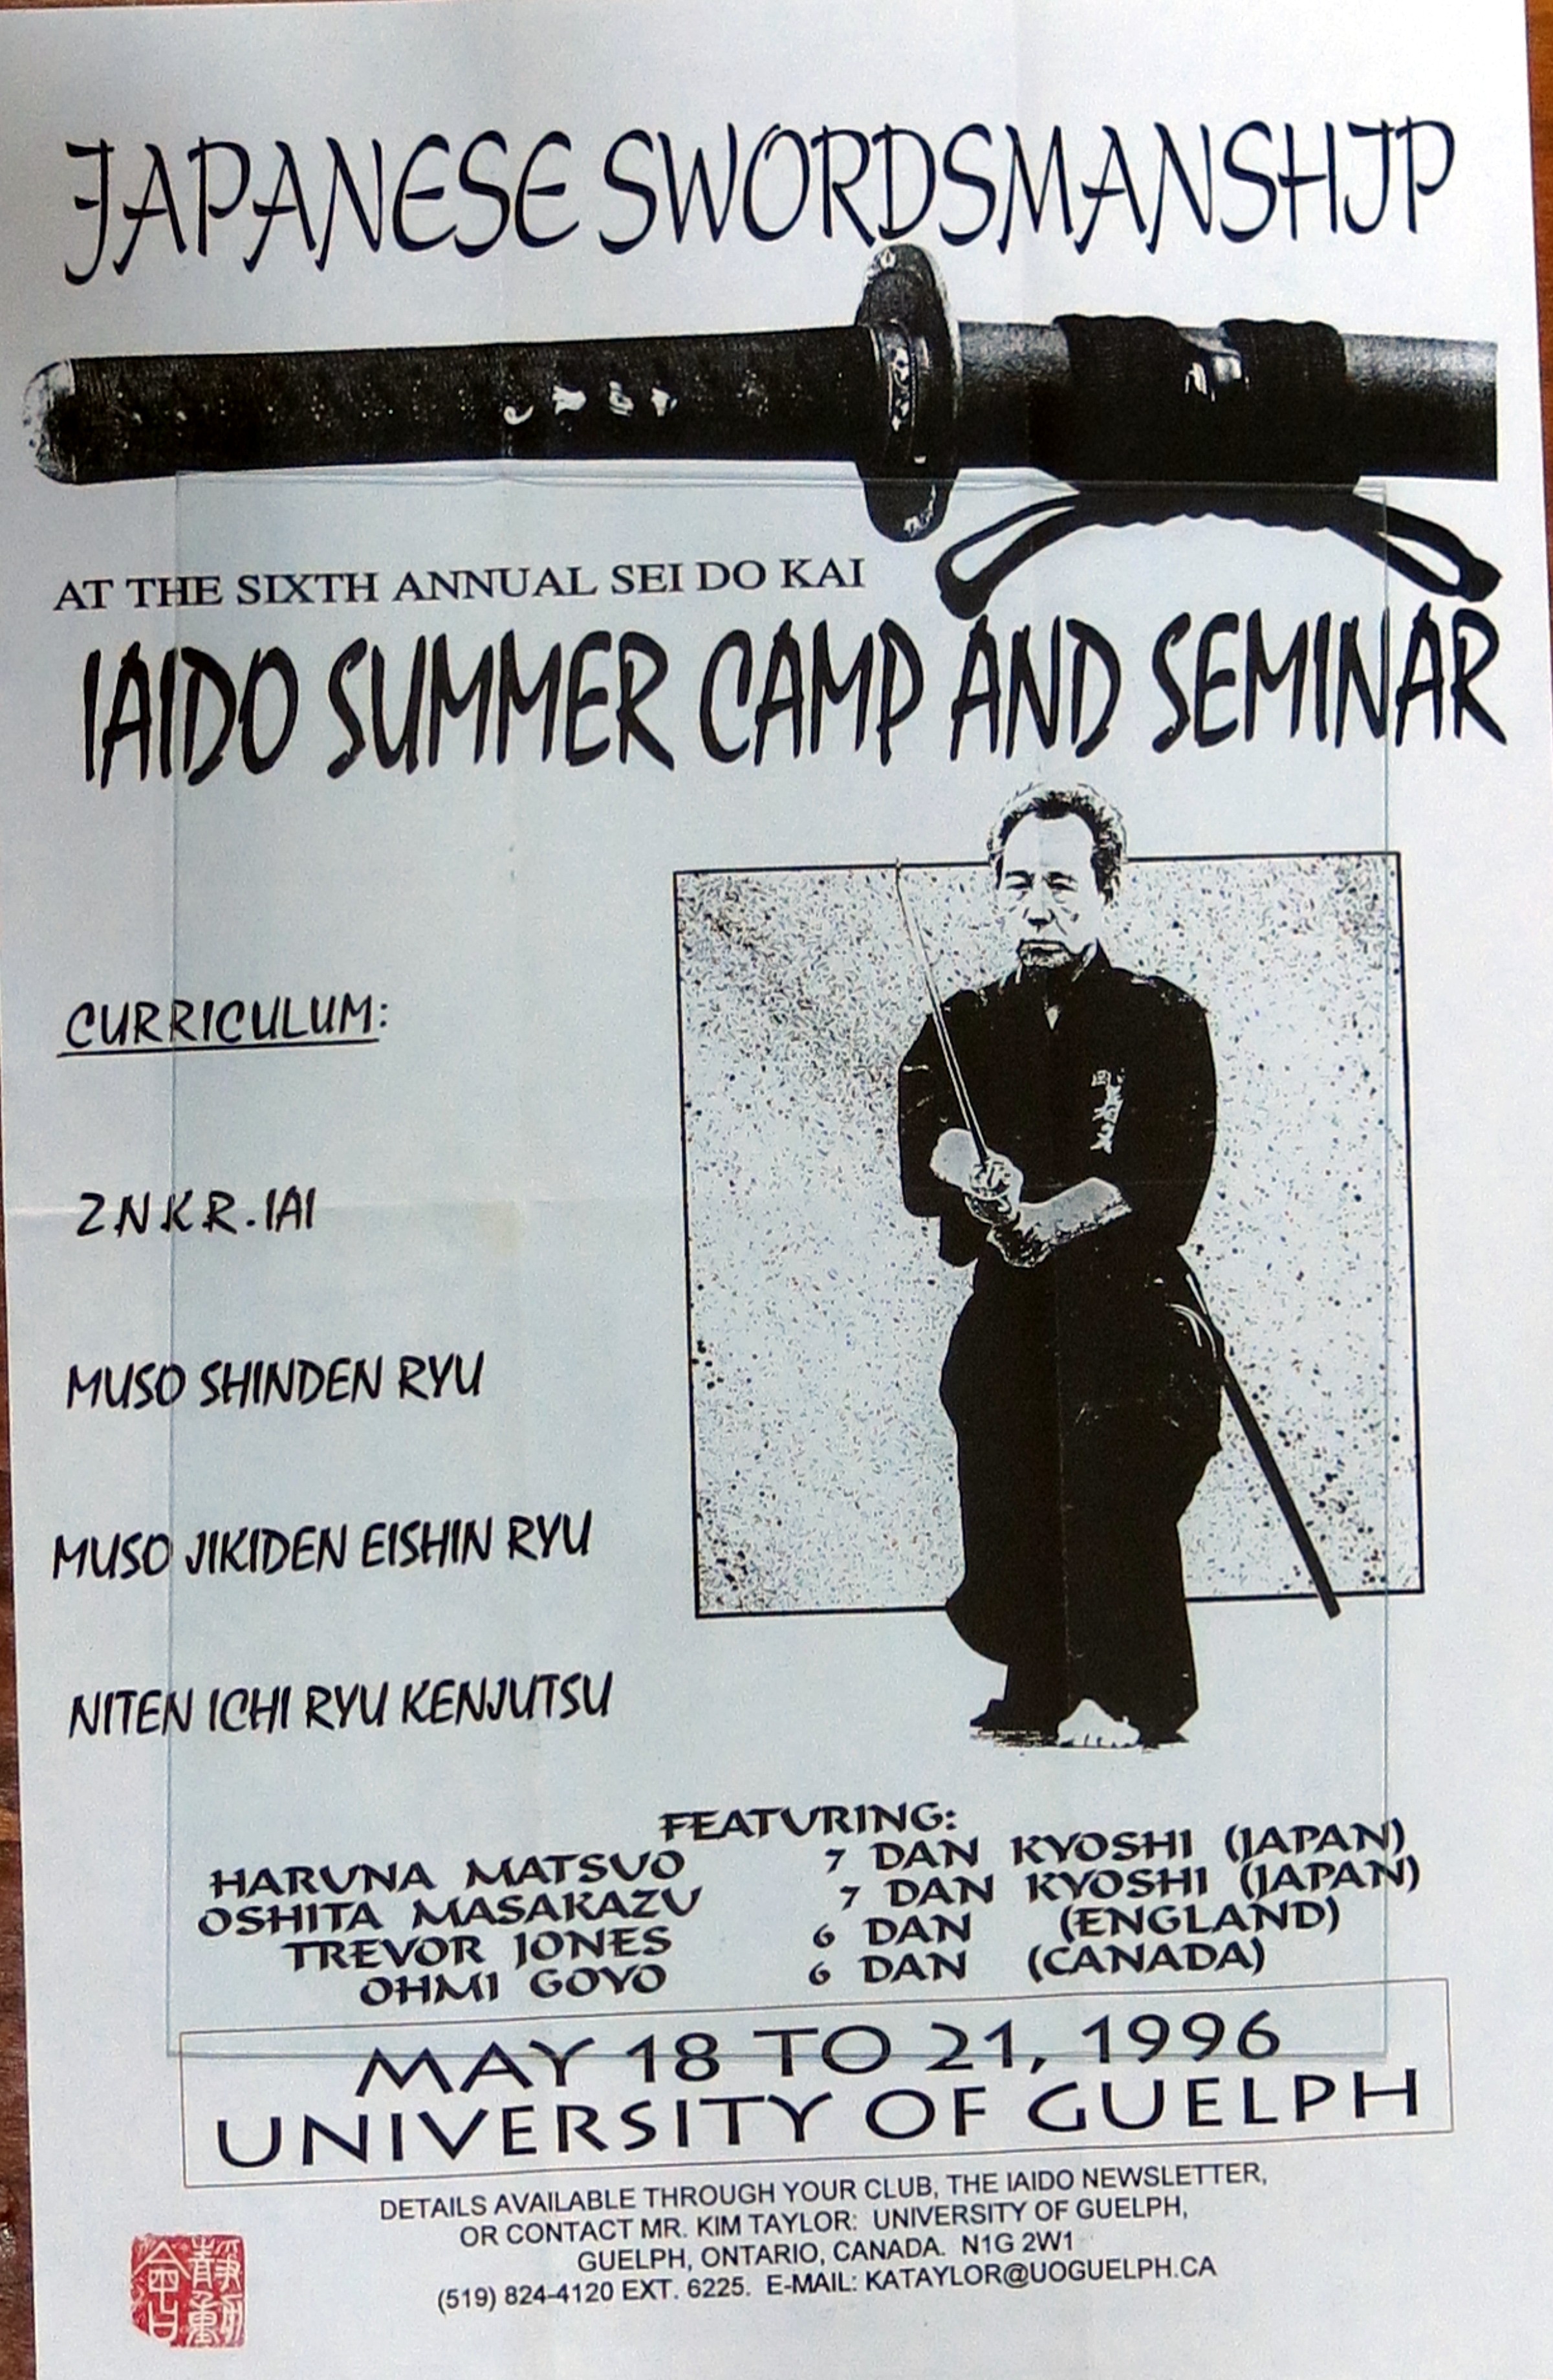 JAPANESE SWORDSMANSHIP
AT THE SIXTH ANNUAL SEI DO KAI
IAIDO SUMMER CAMP AND SEMINAR
CURRICULUM:
ZNKR.IAI
MUSO SHINDEN RYU
MUSO JIKIDEN EISHIN RYU
NITEN ICHI RYU KENJUTSU
FEATURING:
HARUNA MATSUO 7 DAN KYOSHI (JAPAN)
OSHITA MASAKAZU 7 DAN KYOSHI (JAPAN)
TREVOR JONES 6 DAN (ENGLAND)
OHMI GOYO 6 DAN (CANADA)
MAY 18 TO 21, 1996
UNIVERSITY OF GUELPH
DETAILS AVAILABLE THROUGH YOUR CLUB, THE IAIDO NEWSLETTER,
OR CONTACT MR. KIM TAYLOR: UNIVERSITY OF GUELPH,
GUELPH, ONTARIO, CANADA. N1G 2W1
(519) 824-4120 EXT. 6225. E-MAIL: KATAYLOR@UOGUELPH.CA